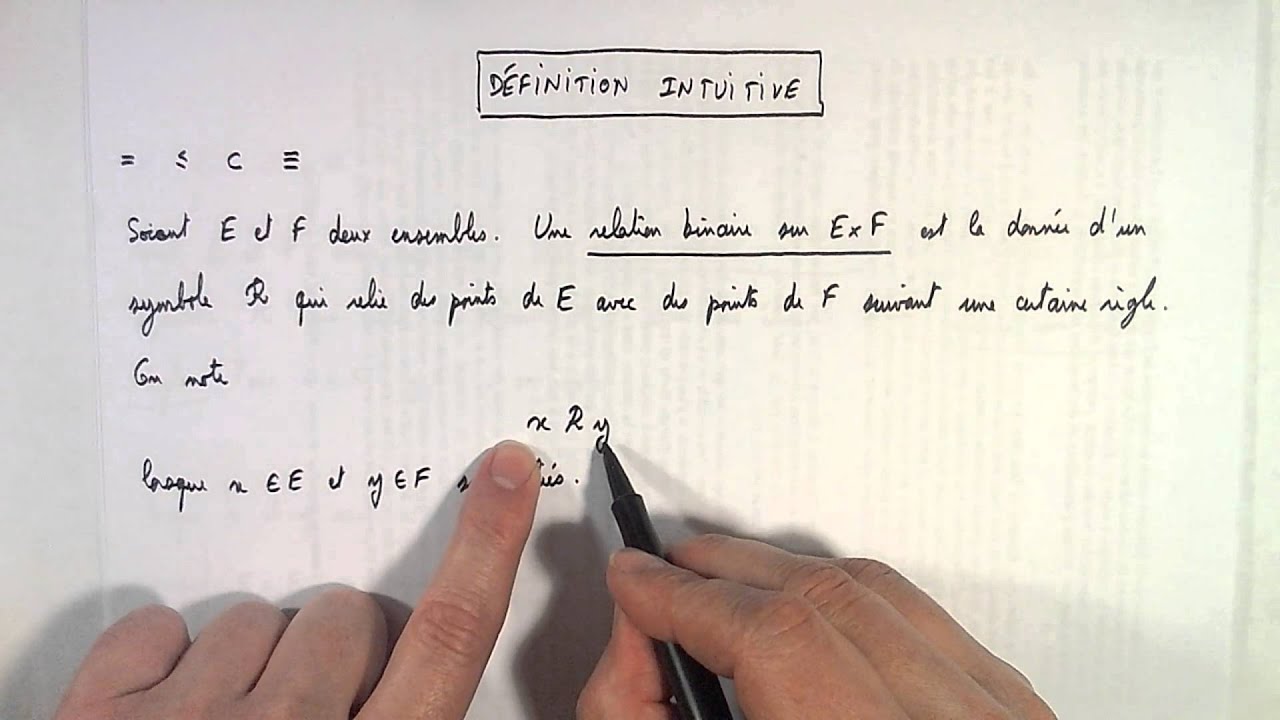 DÉFINITION INTUITIVE
= ≤ ⊂ ≡
Soient E et F deux ensembles. Une relation binaire sur E×F est la donnée d'un
symbole R qui relie des points de E avec des points de F suivant une certaine règle.
On note
x R y
lorsque x ∈ E et y ∈ F